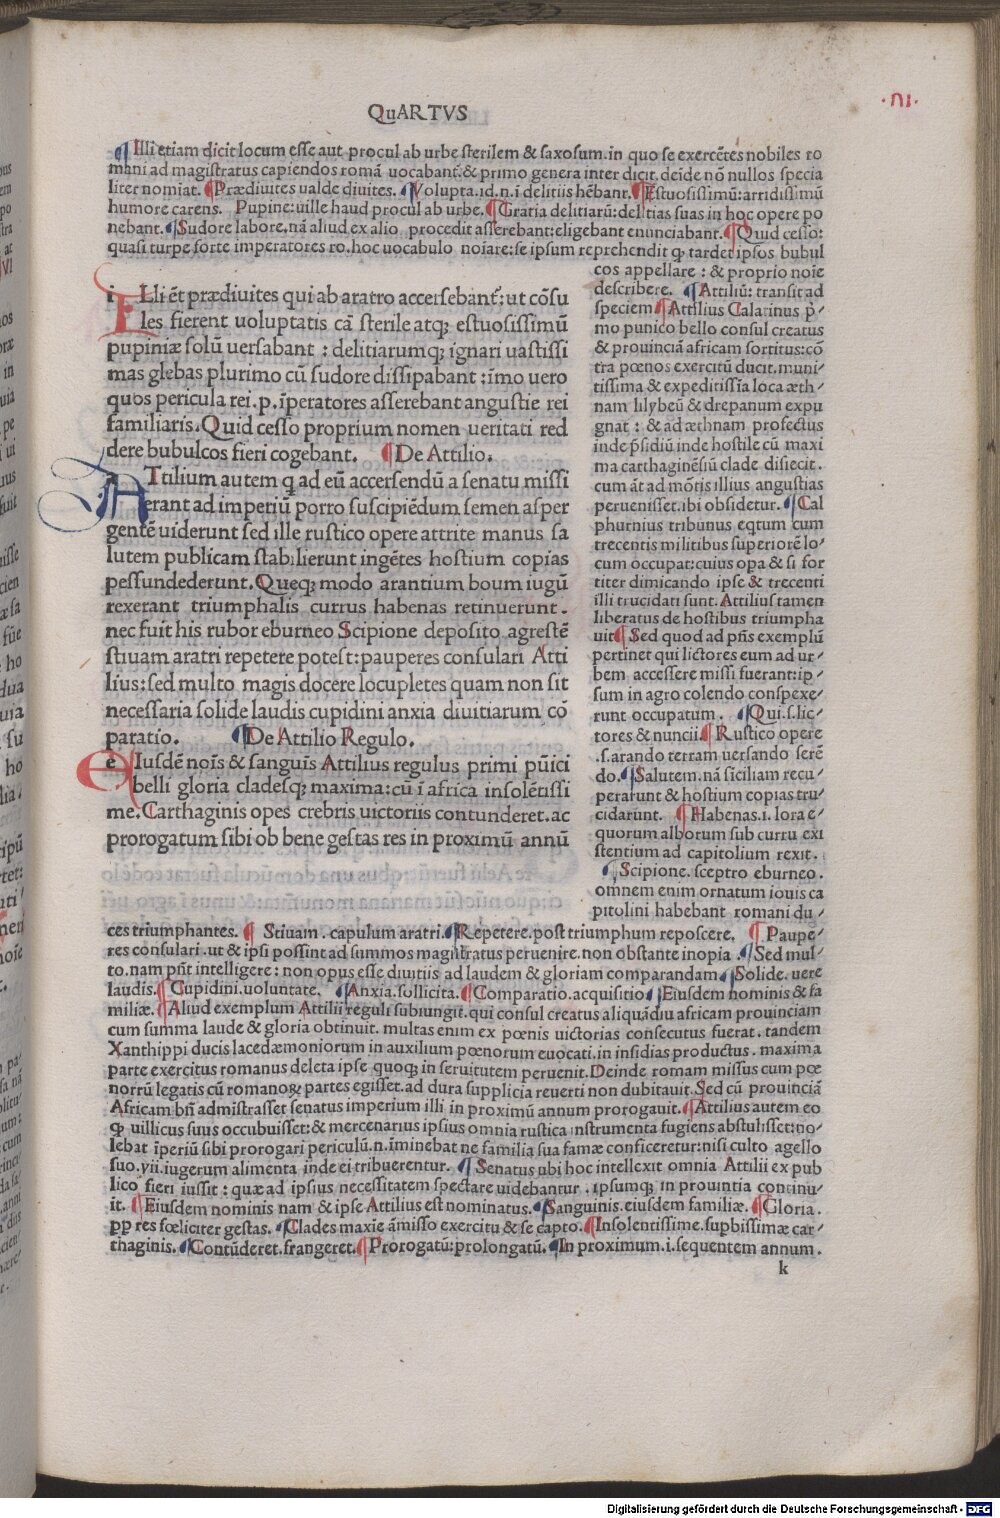 QuARTVS
·VI·
¶Illi etiam dicit locum esse aut procul ab urbe sterilem & saxosum. in quo se exercẽtes nobiles ro
mani ad magistratus capiendos romã uocabant̃. & primo genera inter dicit. deide nõ nullos specia
liter nomiat. ¶Prædiuites ualde diuites. ¶Volupta. id. n. ĩ delitiis hẽbant. ¶Estuosissimũ: arridissimũ
humore carens. Pupine: uille haud procul ab urbe. ¶Gratia delitiarũ: delitias suas in hoc opere po
nebant. ¶Sudore labore. nã aliud ex alio procedit asserebant: eligebant enunciabant. ¶Quid cesso:
quasi turpe forte imperatores ro. hoc uocabulo noiare: se ipsum reprehendit ꝙ tardet ipsos bubul
cos appellare: & proprio noie
describere. ¶Attiliũ: transit ad
speciem ¶Attilius Calatinus p̃/
mo punico bello consul creatus
& prouinciã africam sortitus: cõ
tra pœnos exercitũ ducit. muni/
tissima & expeditissĩa loca æth/
nam lilybeũ & drepanum expu
gnat: & ad æthnam profectus
inde p̃sidiũ inde hostile cũ maxi
ma carthaginẽsiũ clade disiecit.
cum ãt ad mõtis illius angustias
peruenisset. ibi obsidetur. ¶Cal
phurnius tribunus eqtum cum
trecentis militibus superiorẽ lo/
cum occupat: cuius opa & si for
titer dimicando ipse & trecenti
illi trucidati sunt. Attilius tamen
liberatus de hostibus triumpha
uit ¶Sed quod ad p̃ns exemplũ
pertinet qui lictores eum ad ur/
bem accessere missi fuerant: ip/
sum in agro colendo conspexe/
runt occupatum. ¶Qui. s. lic/
tores & nuncii. ¶Rustico opere
.s. arando terram uersando serẽ
do. ¶Salutem. nã siciliam recu/
perarunt & hostium copias tru/
cidarunt. ¶Habenas. i. lora e/
quorum alborum sub curru exi
stentium ad capitolium rexit.
¶Scipione. sceptro eburneo.
omnem enim ornatum iouis ca
pitolini habebant romani du/
i Lli ẽt prædiuites qui ab aratro accersebant̃: ut cõsu
les fierent uoluptatis cã sterile atqꝫ estuosissimũ
pupiniæ solũ uersabant: delitiarumqꝫ ignari uastissi
mas glebas plurimo cũ sudore dissipabant: ĩmo uero
quos pericula rei. p. ĩperatores asserebant angustie rei
familiaris. Quid cesso proprium nomen ueritati red
dere bubulcos fieri cogebant. ¶De Attilio.
A Ttilium autem q ad eũ accersendũ a senatu missi
erant ad imperiũ porro suscipiẽdum semen asper
gentẽ uiderunt sed ille rustico opere attrite manus sa
lutem publicam stabilierunt ingẽtes hostium copias
pessundederunt. Queqꝫ modo arantium boum iugũ
rexerant triumphalis currus habenas retinuerunt.
nec fuit his rubor eburneo Scipione deposito agrestẽ
stiuam aratri repetere potest: pauperes consulari Atti
lius: sed multo magis docere locupletes quam non sit
necessaria solide laudis cupidini anxia diuitiarum cõ
paratio. ¶De Attilio Regulo.
e Iusdẽ nois & sanguis Attilius regulus primi pũici
belli gloria cladesqꝫ maxima: cũ ĩ africa insolẽtissi
me. Carthaginis opes crebris uictoriis contunderet. ac
prorogatum sibi ob bene gestas res in proximũ annũ
ces triumphantes. ¶Stiuam. capulum aratri. ¶Repetere. post triumphum reposcere. ¶Paupe/
res consulari. ut & ipsi possint ad summos magistratus peruenire. non obstante inopia. ¶Sed mul/
to. nam põt intelligere: non opus esse diuitiis ad laudem & gloriam comparandam ¶Solide. uere
laudis. ¶Cupidini. uoluntate. ¶Anxia. sollicita. ¶Comparatio. acquisitio ¶Eiusdem nominis & fa
miliæ. ¶Aliud exemplum Attilii reguli subiungit. qui consul creatus aliquãdiu africam prouinciam
cum summa laude & gloria obtinuit. multas enim ex pœnis uictorias consecutus fuerat. tandem
Xanthippi ducis lacedæmoniorum in auxilium pœnorum euocati. in insidias productus. maxima
parte exercitus romanus deleta ipse quoqꝫ in seruitutem peruenit. Deinde romam missus cum pœ
norrũ legatis cũ romanoꝝ partes egisset. ad dura supplicia reuerti non dubitauit. Sed cũ prouinciã
Africam bñ admistrasset senatus imperium illi in proximũ annum prorogauit. ¶Attilius autem eo
ꝙ uillicus suus occubuisset: & mercenarius ipsius omnia rustica instrumenta fugiens abstulisset: no/
lebat ĩperiũ sibi prorogari periculũ. n. ĩminebat ne familia sua famæ conficeretur: nisi culto agello
suo. vii. iugerum alimenta inde ei tribuerentur. ¶Senatus ubi hoc intellexit omnia Attilii ex pub
lico fieri iussit: quæ ad ipsius necessitatem spectare uidebantur. ipsumqꝫ in prouintia continu/
it. ¶Eiusdem nominis nam & ipse Attilius est nominatus. ¶Sanguinis. eiusdem familiæ. ¶Gloria.
pp res fœliciter gestas. ¶Clades maxie ãmisso exercitu & se capto. ¶Insolentissime. supbissimæ car/
thaginis. ¶Contũderet. frangeret. ¶Prorogatũ: prolongatũ. ¶In proximum. i. sequentem annum.
k
Digitalisierung gefördert durch die Deutsche Forschungsgemeinschaft - DFG